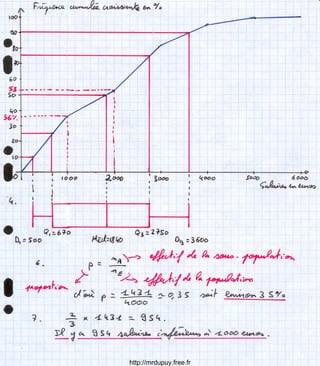 Fréquence cumulée croissante en %
100
90
80
60
53
50
40
36%
30
20
10
0
1000
2000
3000
4000
5000
6000
Salaires en euros
4.
D₁ = 500
Q₁ = 670
Méd = 1840
Q₃ = 2750
D₉ = 3600
6. p = nA / nE
effectif de la sous-population
effectif de la population
proportion
d'où p = 1431 / 4000 ≃ 0,35 soit environ 35%
7. 2/3 × 1431 = 954.
Il y a 954 salaires inférieurs à 1000 euros.
http://mrdupuy.free.fr